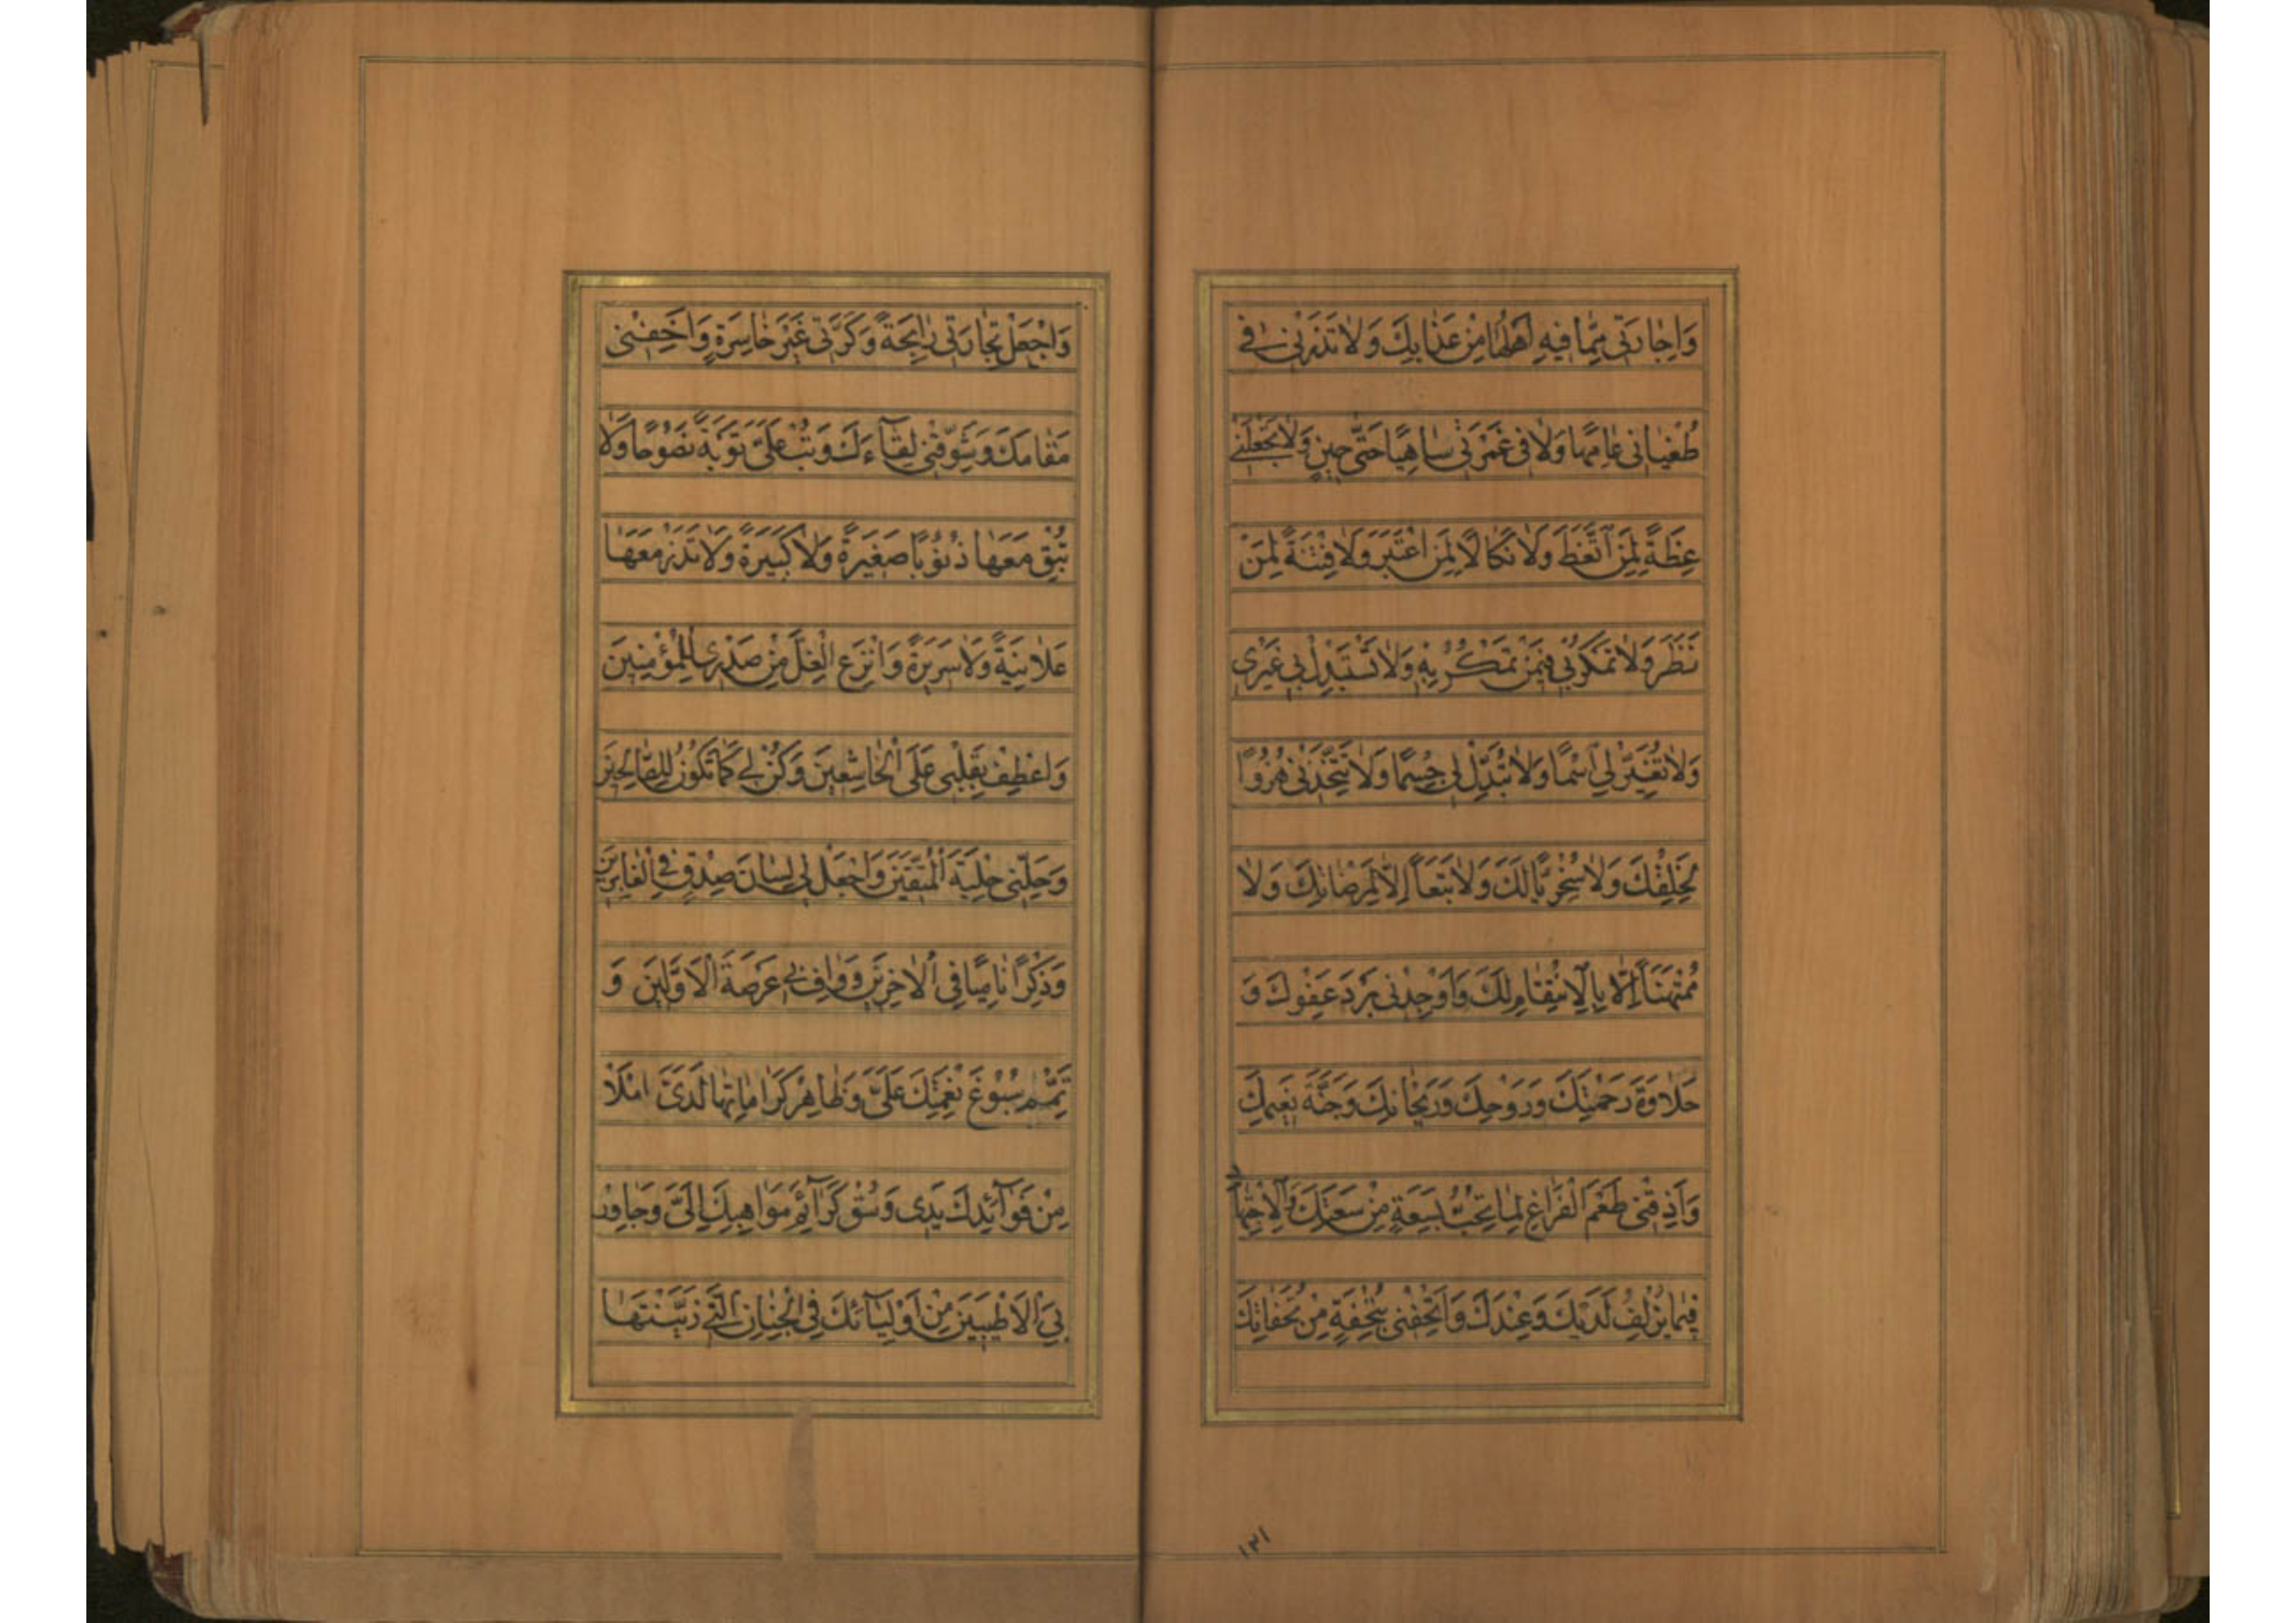 وَاِجٰارَتی مِمّٰا فیهِ اَهْلُهٰا مِنْ عَذٰابِكَ وَلاٰ تَذَرْنی فی
طُغْیٰانی عٰامِهًا وَلاٰ فی غَمْرَتی سٰاهِیًا حَتّٰی حینٍ وَلاٰ تَجْعَلْنی
عِظَةً لِمَنِ اتَّعَظَ وَلاٰ نَكٰالًا لِمَنِ اعْتَبَرَ وَلاٰ فِتْنَةً لِمَنْ
نَظَرَ وَلاٰ تَمْكُرْ بی فیمَنْ تَمْكُرُ بِهِ وَلاٰ تَسْتَبْدِلْ بی غَیْری
وَلاٰ تُغَیِّرْ لِی اسْمًا وَلاٰ تُبَدِّلْ لی جِسْمًا وَلاٰ تَتَّخِذْنی هُزُوًا
لِخَلْقِكَ وَلاٰ سُخْرِیًّا لَكَ وَلاٰ تَبَعًا اِلّاٰ لِمَرْضٰاتِكَ وَلاٰ
مُمْتَهَنًا اِلّاٰ بِالْاِنْتِقٰامِ لَكَ وَاَوْجِدْنی بَرْدَ عَفْوِكَ وَ
حَلاٰوَةَ رَحْمَتِكَ وَرَوْحِكَ وَرَیْحٰانِكَ وَجَنَّةَ نَعیمِكَ
وَاَذِقْنی طَعْمَ الْفَرٰاغِ لِمٰا تُحِبُّ بِسَعَةٍ مِنْ سَعَتِكَ وَالْاِجْتِهٰادِ
فیمٰا یُزْلِفُ لَدَیْكَ وَعِنْدَكَ وَاَتْحِفْنی بِتُحْفَةٍ مِنْ تُحَفٰاتِكَ
۱۳۱
وَاجْعَلْ تِجٰارَتی رٰابِحَةً وَكَرَّتی غَیْرَ خٰاسِرَةٍ وَاَخِفْنی
مَقٰامَكَ وَشَوِّقْنی لِقٰآءَكَ وَتُبْ عَلَیَّ تَوْبَةً نَصُوحًا وَلاٰ
تُبْقِ مَعَهٰا ذُنُوبًا صَغیرَةً وَلاٰ كَبیرَةً وَلاٰ تَذَرْ مَعَهٰا
عَلاٰنِیَةً وَلاٰ سَریرَةً وَانْزِعِ الْغِلَّ مِنْ صَدْری لِلْمُؤْمِنینَ
وَاعْطِفْ بِقَلْبی عَلَی الْخٰاشِعینَ وَكُنْ لی كَمٰا تَكُونُ لِلصّٰالِحینَ
وَحَلِّنی حِلْیَةَ الْمُتَّقینَ وَاجْعَلْ لی لِسٰانَ صِدْقٍ فِی الْغٰابِرینَ
وَذِكْرًا نٰامِیًا فِی الْاٰخِرینَ وَوٰافِ بی عَرْصَةَ الْاَوَّلینَ وَ
تَمِّمْ سُبُوغَ نِعْمَتِكَ عَلَیَّ وَظٰاهِرْ كَرٰامٰاتِهٰا لَدَیَّ امْلَاْ
مِنْ فَوٰآئِدِكَ یَدی وَسُقْ كَرٰآئِمَ مَوٰاهِبِكَ اِلَیَّ وَجٰاوِرْ
بِیَ الْاَطْیَبینَ مِنْ اَوْلِیٰآئِكَ فِی الْجِنٰانِ الَّتی زَیَّنْتَهٰا